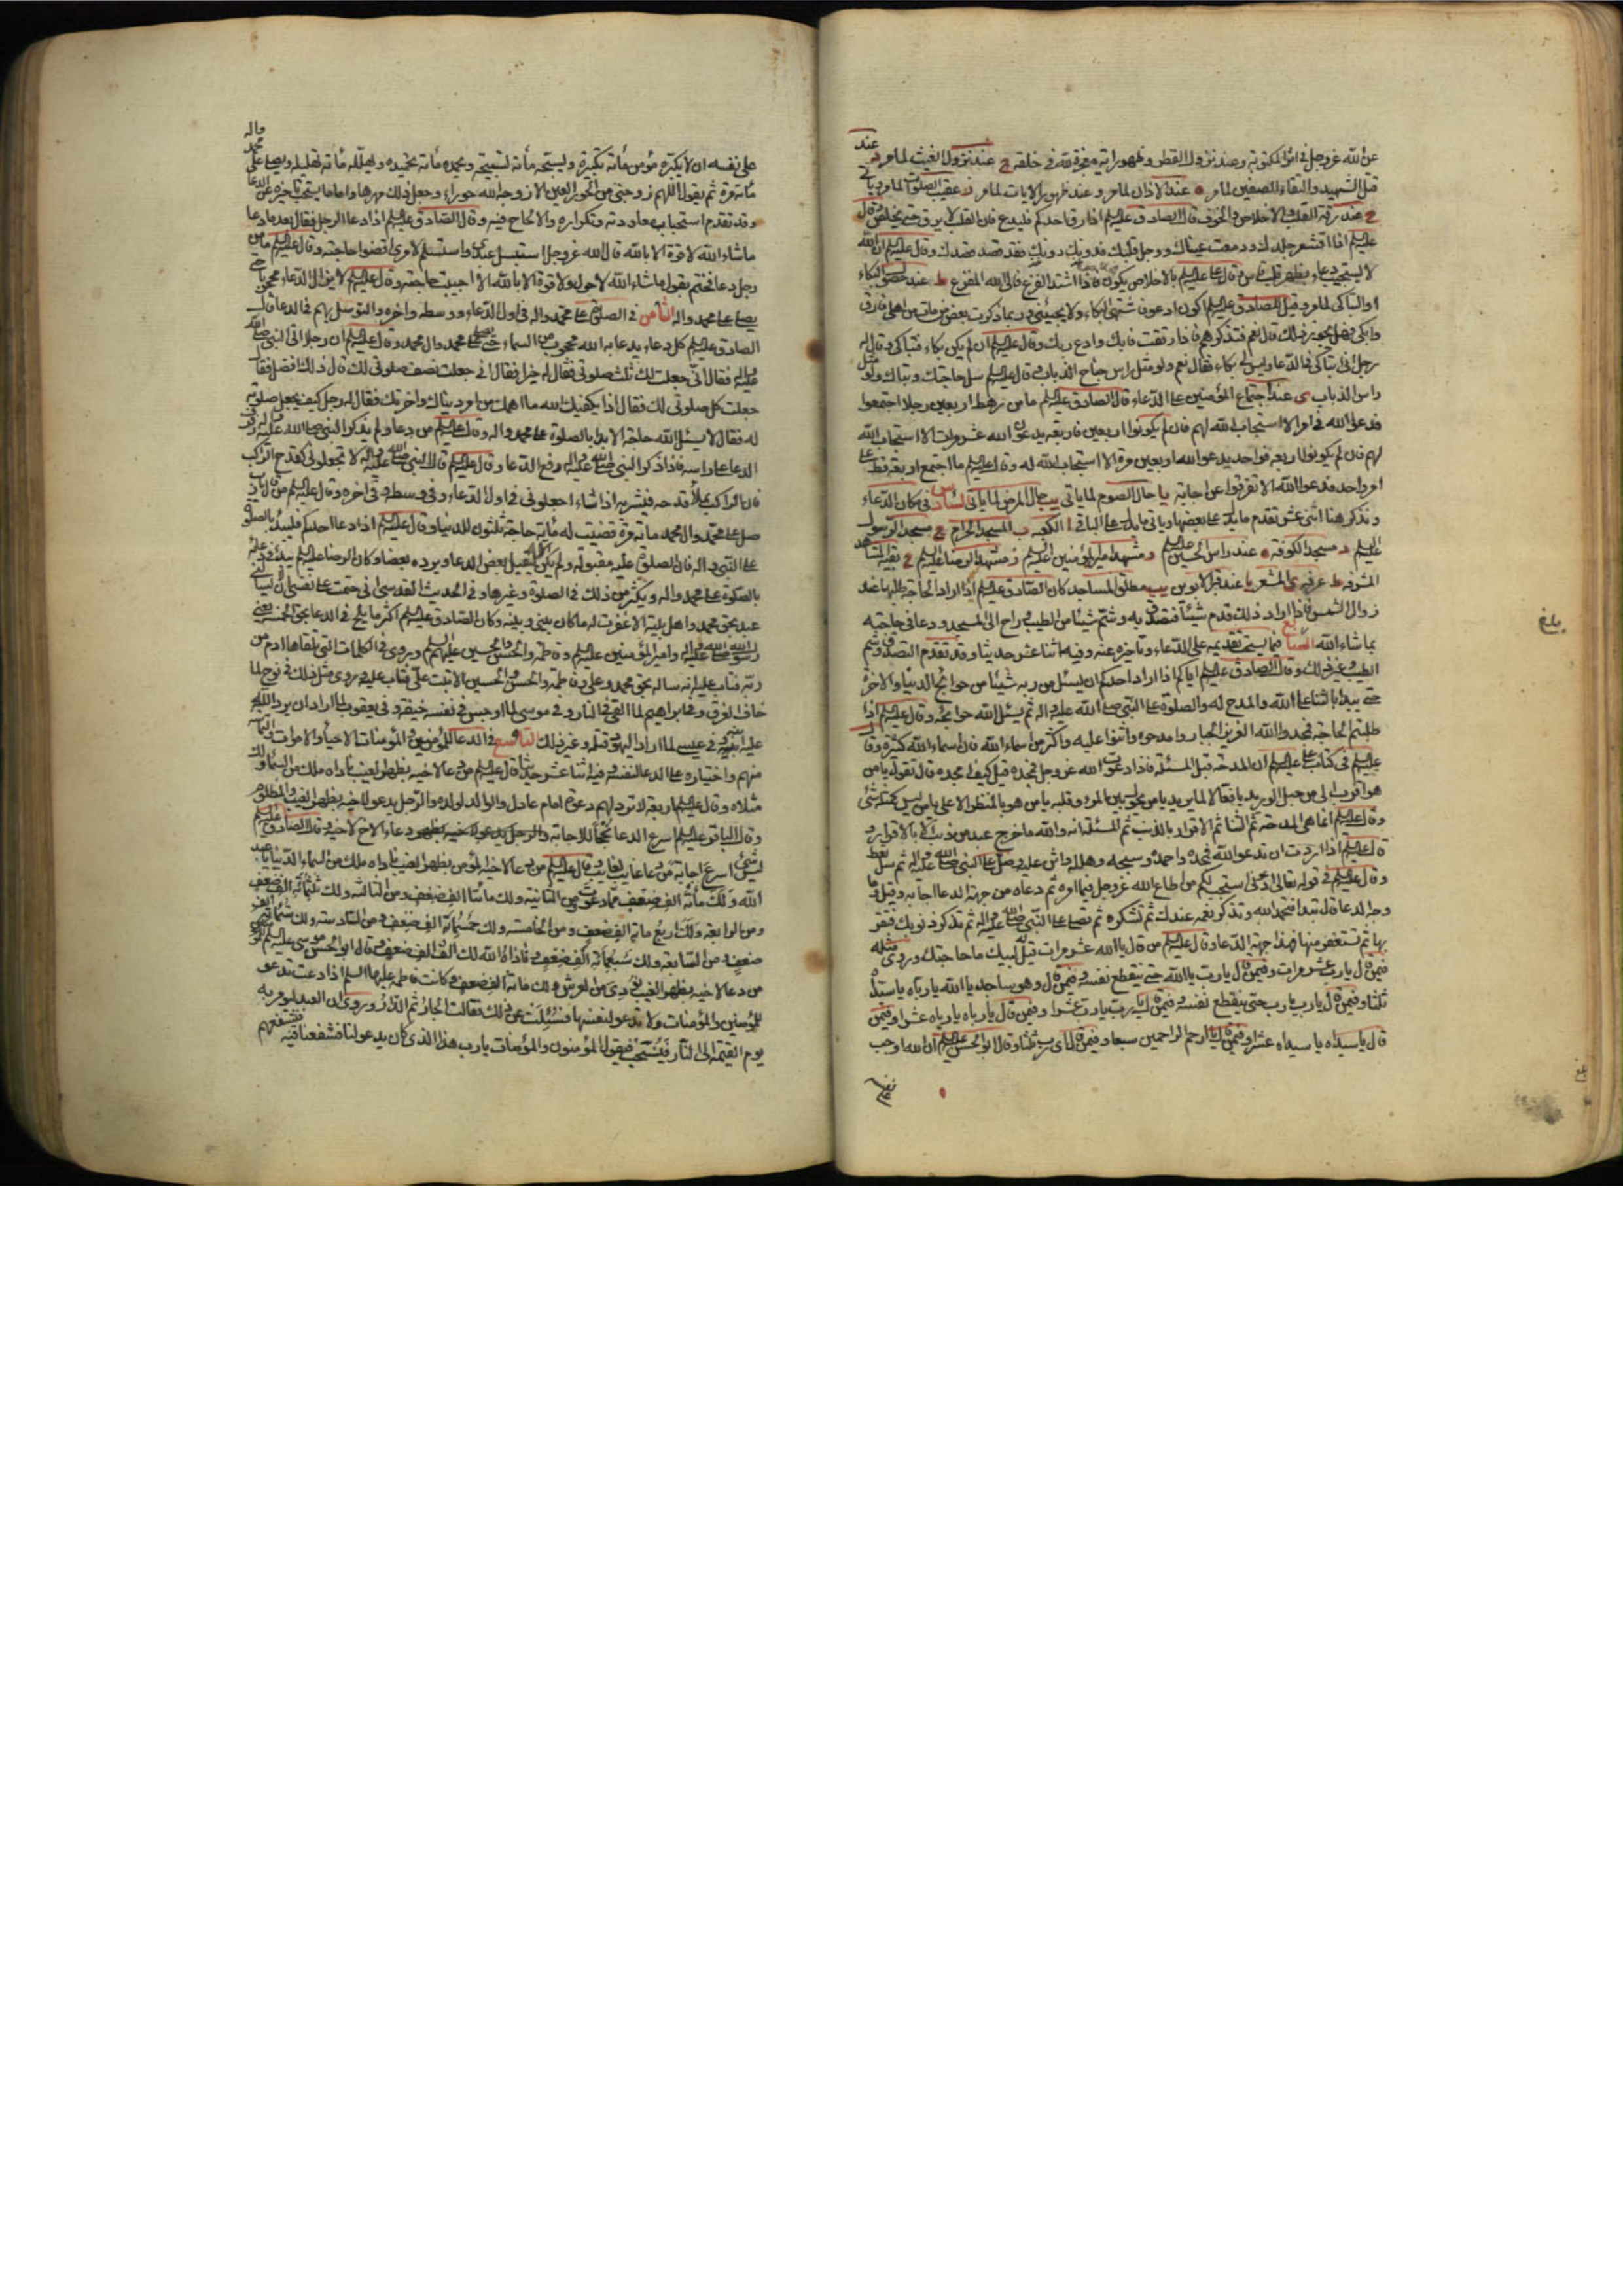 عن الله عزوجل في اثر المكتوبة وعند نزول القطر وظهور اية معجزة لله في خلقه ج عند نزول الغيث لما مر د عند
قتل الشهيد والتقاء الصفين لما مر ه عند الاذان لما مر و عند ظهور الايات لما مر ز عقيب الصلوات لما مر وياتي
ح عند رقة القلب والاخلاص والخوف قال الصادق عليه السلام اذا رق احدكم فليدع فان القلب لا يرق حتى يخلص وقال
عليه السلام اذا اقشعر جلدك ودمعت عيناك ووجل قلبك فدونك دونك فقد قصد قصدك وقال عليه السلام ان الله
لا يستجيب دعاء بظهر قلب قاس وقال عليه السلام بالاخلاص يكون فاذا اشتد الفزع فالى الله المفزع ط عند حضور البكاء
او التباكي لما مر وقيل للصادق عليه السلام اكون ادعو فاشتهي البكاء ولا يجيئني وربما ذكرت بعض من مات من اهلي فارق
وابكي فهل يجوز ذلك قال نعم فتذكرهم فاذا رققت فابك وادع ربك وقال عليه السلام ان لم يكن بكاء فتباكى وقال له
رجل اني اتباكى في الدعاء وليس لي بكاء فقال نعم ولو مثل راس جناح الذباب وقال عليه السلام سل حاجتك وتباك ولو مثل
راس الذباب ى عند اجتماع المؤمنين على الدعاء قال الصادق عليه السلام ما من رهط اربعين رجلا اجتمعوا
فدعوا الله في امر الا استجاب الله لهم فان لم يكونوا اربعين فاربعة يدعون الله عشر مرات الا استجاب الله
لهم فان لم يكونوا اربعة فواحد يدعو الله اربعين مرة الا استجاب الله له وقال عليه السلام ما اجتمع اربعة قط على
امر واحد فدعوا الله الا تفرقوا عن اجابة يا حال الصوم لما ياتي يب حال المرض لما ياتي السادس في مكان الدعاء
ونذكر هنا اثنى عشر تقدم ما يدل على بعضها وياتي ما يدل على الباقي ا الكعبة ب المسجد الحرام ج مسجد الرسول
عليه السلام د مسجد الكوفة ه عند راس الحسين عليه السلام و مشهد امير المؤمنين عليه السلام ز مشهد الرضا عليه السلام ح بقية المشاهد
المشرفة ط عرفة ى المشعر يا عند قبر الابوين يب مطلق المساجد كان الصادق عليه السلام اذا اراد الحاجة طلبها عند
زوال الشمس فاذا اراد ذلك قدم شيئا فتصدق به وشم شيئا من الطيب وراح الى المسجد ودعا في حاجته
بما شاء الله السابع فيما يستحب تقديمه على الدعاء وتاخيره عنه وفيه اثنا عشر حديثا وقد تقدم التصدق وشم
الطيب وغير ذلك وقال الصادق عليه السلام اياكم اذا اراد احدكم ان يسئل من ربه شيئا من حوائج الدنيا والاخرة
حتى يبدا بالثناء على الله والمدح له والصلوة على النبي صلى الله عليه واله ثم يسئل الله حوائجه وقال عليه السلام اذا
طلبتم الحاجة فمجدوا الله العزيز الجبار وامدحوه واثنوا عليه واكثر من اسماء الله فان اسماء الله كثيرة وقال
عليه السلام في كتاب علي عليه السلام ان المدحة قبل المسئلة فاذا دعوت الله عزوجل فمجده قيل كيف امجده قال تقول يا من
هو اقرب الي من حبل الوريد يا فعالا لما يريد يا من يحول بين المرء وقلبه يا من هو بالمنظر الاعلى يا من ليس كمثله شئ
وقال عليه السلام انما هي المدحة ثم الثناء ثم الاقرار بالذنب ثم المسئلة انه والله ما خرج عبد من ذنب الا بالاقرار و
قال عليه السلام اذا اردت ان تدعو الله فمجده واحمده وسبحه وهلله واثن عليه وصل على النبي صلى الله عليه واله ثم سل تعط
وقال عليه السلام في قوله تعالى ادعوني استجب لكم من اطاع الله عزوجل فيما امره ثم دعاه من جهة الدعاء اجابه وقيل وما
وجه الدعاء قال تبدا فتحمد الله وتذكر نعمه عندك ثم تشكره ثم تصلي على النبي صلى الله عليه واله ثم تذكر ذنوبك فتقر
بها ثم تستغفر منها فهذا جهة الدعاء وقال عليه السلام من قال يا الله عشر مرات قيل له لبيك ما حاجتك وروى مثله
فيمن قال يا رب عشر مرات وفيمن قال يا رب يا الله حتى ينقطع نفسه وفيمن قال وهو ساجد يا الله يا رباه يا سيداه
ثلثا وفيمن قال يا رب يا رب حتى ينقطع نفسه وفيمن قال يا رب يا رب عشرا وفيمن قال يا رباه يا رباه عشرا وفيمن
قال يا سيداه يا سيداه عشرا وفيمن قال يا ارحم الراحمين سبعا وفيمن قال اي رب ثلثا وقال ابو الحسن عليه السلام ان الله اوجب
بلغ
على نفسه ان لا يكبره مؤمن مأة تكبيرة ويسبحه مأة تسبيحة ويحمده مأة تحميدة ويهلله مأة تهليلة ويصلي على محمد واله
مأة مرة ثم يقول اللهم زوجني من الحور العين الا زوجه الله حوراء وجعل ذلك مهرها واما ما يستحب تاخيره عن الدعاء
وقد تقدم استحباب معاودته وتكراره والالحاح فيه وقال الصادق عليه السلام اذا دعا الرجل فقال بعد ما دعا
ما شاء الله لا قوة الا بالله قال الله عزوجل استبسل عبدي واستسلم لامري اقضوا حاجته وقال عليه السلام ما من
رجل دعا فختم بقول ما شاء الله لا حول ولا قوة الا بالله الا اجيبت حاجته وقال عليه السلام لا يزال الدعاء محجوبا حتى
يصلى على محمد واله الثامن في الصلوة على محمد واله في اول الدعاء ووسطه واخره والتوسل بهم في الدعاء قال
الصادق عليه السلام كل دعاء يدعا به الله محجوب من السماء حتى يصلى على محمد وال محمد وقال عليه السلام ان رجلا اتى النبي صلى الله
عليه واله فقال اني جعلت لك ثلث صلوتي فقال له خيرا فقال اني جعلت نصف صلوتي لك قال ذلك افضل فقال
جعلت كل صلوتي لك فقال اذا يكفيك الله ما اهمك من امر دنياك واخرتك فقال له رجل كيف يجعل صلوته
له فقال لا يسئل الله حاجة الا بدا بالصلوة على محمد واله وقال عليه السلام من دعا ولم يذكر النبي صلى الله عليه واله رفرف
الدعاء على راسه فاذا ذكر النبي صلى الله عليه واله رفع الدعاء وقال عليه السلام قال النبي صلى الله عليه واله لا تجعلوني كقدح الراكب
فان الراكب يملأ قدحه فيشربه اذا شاء اجعلوني في اول الدعاء وفي وسطه وفي اخره وقال عليه السلام من قال يا رب
صل على محمد وال محمد مائة مرة قضيت له مائة حاجة ثلثون للدنيا وقال عليه السلام اذا دعا احدكم فليبدأ بالصلوة
على النبي واله فان الصلوة عليه مقبولة ولم يكن الله ليقبل بعض الدعاء ويرد بعضا وكان الرضا عليه السلام يبدا في دعائه
بالصلوة على محمد واله ويكثر من ذلك في الصلوة وغيرها وفي الحديث القدسي اني حتمت على نفسي ان لا يسألني
عبد بحق محمد واهل بيته الا غفرت له ما كان بيني وبينه وكان الصادق عليه السلام اكثر ما يلح في الدعاء بحق الخمسة يعني
رسول الله صلى الله عليه واله وامير المؤمنين عليه السلام وفاطمة والحسن والحسين عليهم السلام وروي في الكلمات التي تلقاها ادم من
ربه فتاب عليه انه ساله بحق محمد وعلي وفاطمة والحسن والحسين الا تبت علي فتاب عليه وروي مثل ذلك في نوح لما
خاف الغرق وفي ابراهيم لما القي في النار وفي موسى لما اوجس في نفسه خيفة وفي يعقوب لما اراد ان يرد الله
عليه ابنيه وفي عيسى لما اراد اليهود قتله وغير ذلك التاسع في الدعاء للمؤمنين والمؤمنات الاحياء والاموات
منهم واختياره على الدعاء لنفسه وفيه اثنا عشر حديثا قال عليه السلام من دعا لاخيه بظهر الغيب ناداه ملك من السماء ولك
مثلاه وقال عليه السلام اربعة لا ترد لهم دعوة امام عادل والوالد لولده والرجل يدعو لاخيه بظهر الغيب والمظلوم
وقال الباقر عليه السلام اسرع الدعاء نجحا للاجابة دعاء الاخ لاخيه وقال الصادق عليه السلام
ليس شئ اسرع اجابة من دعاء غايب لغايب وقال عليه السلام من دعا لاخيه المؤمن بظهر الغيب ناداه ملك من السماء الدنيا يا عبد
الله ولك مأة الف ضعف مما دعوت ومن الثانية ولك مأتا الف ضعف ومن الثالثة ولك ثلثمائة الف ضعف
ومن الرابعة ولك اربع مائة الف ضعف ومن الخامسة ولك خمسمائة الف ضعف ومن السادسة ولك ستمائة الف
ضعف ومن السابعة ولك سبعمائة الف ضعف فاذا الله لك الف الف ضعف وقال ابو الحسن موسى عليه السلام
من دعا لاخيه بظهر الغيب نودي من العرش ولك مائة الف ضعف وكانت فاطمة عليها السلام اذا دعت تدعو
للمؤمنين والمؤمنات ولا تدعو لنفسها فسئلت عن ذلك فقالت الجار ثم الدار وروي ان العبد ليؤمر به
يوم القيمة الى النار فيسحب فيقول المؤمنون والمؤمنات يا رب هذا الذي كان يدعو لنا فشفعنا فيه فيشفعهم